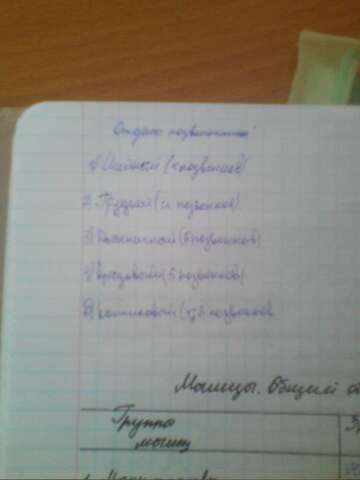 Отделы позвоночника:
1) Шейный (7 позвонков)
2) Грудной (12 позвонков)
3) Поясничный (5 позвонков)
4) Крестцовый (5 позвонков)
5) Копчиковый (4-5 позвонков
Мышцы. Общий о
Группы
мышц